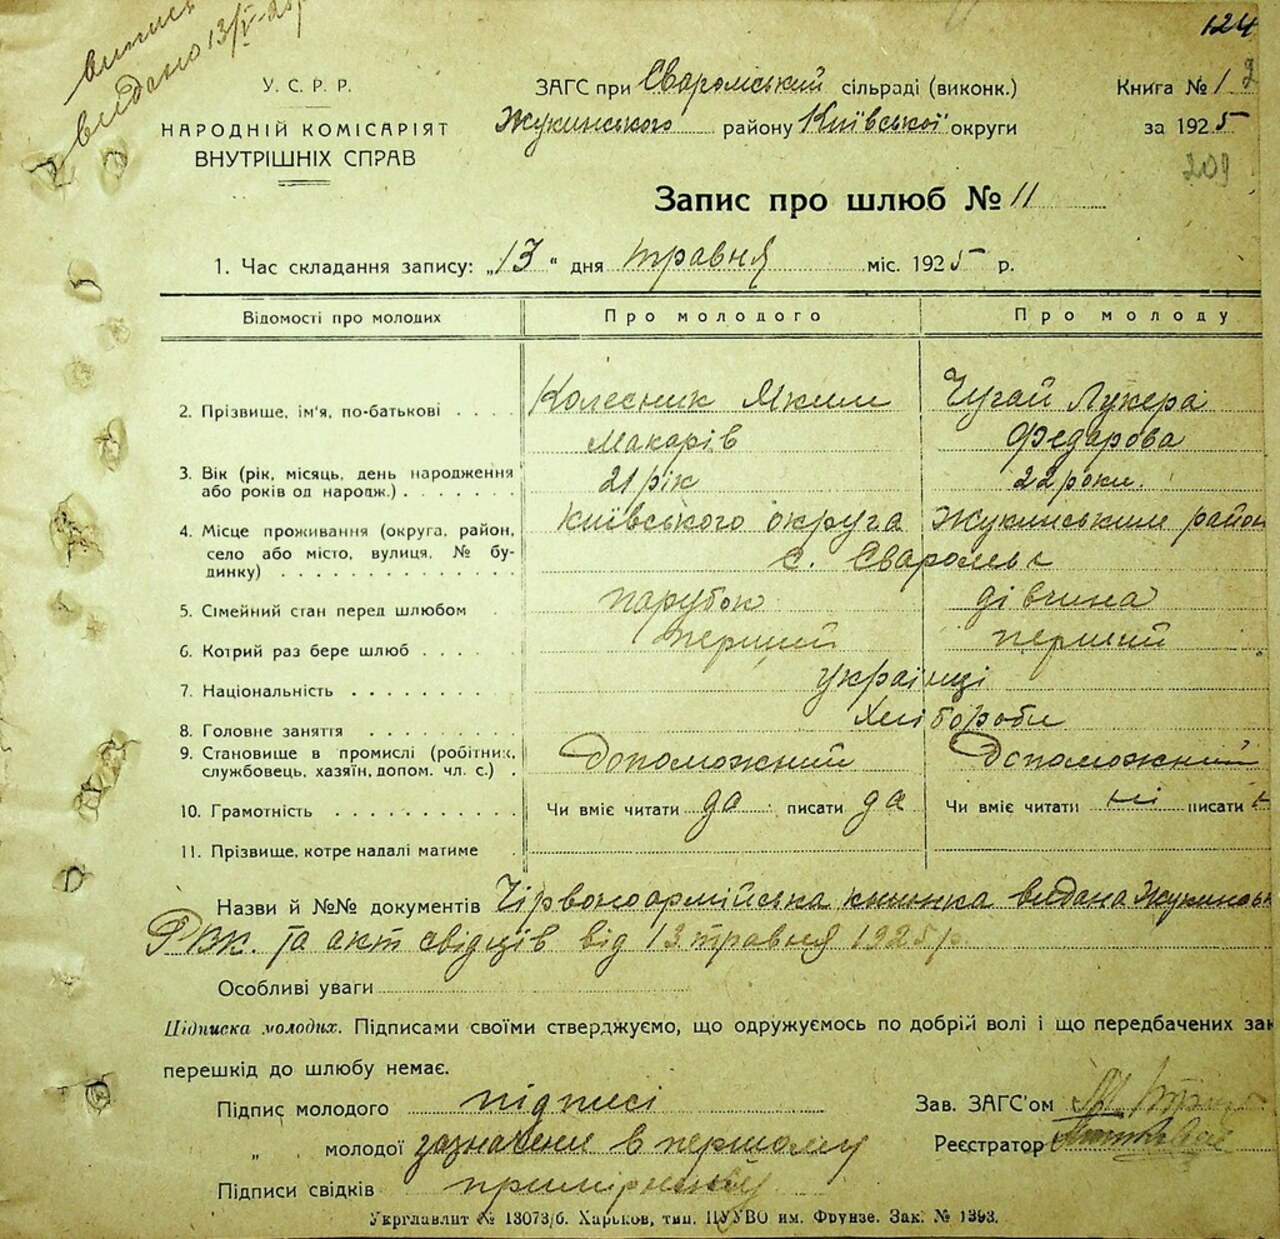 124
виписъ
видано 13/V-25р
У. С. Р. Р.
НАРОДНІЙ КОМІСАРІЯТ
ВНУТРІШНІХ СПРАВ
ЗАГС при Сваромський сільраді (виконк.)
Жукинського району Київської округи
Книга № 1
за 1925
209
Запис про шлюб № 11
1. Час складання запису: „13“ дня травня міс. 1925 р.
Відомості про молодих Про молодого Про молоду
2. Прізвище, ім'я, по-батькові . . . . Колесник Яким Чугай Лукера
Макарів Федарова
3. Вік (рік, місяць, день народження 21 рік 22 роки.
або років од народж.) . . . . . . .
4. Місце проживання (округа, район, Київського округа Жукинським район
село або місто, вулиця, № бу- с. Сваромьє
динку) . . . . . . . . . . . . . .
5. Сімейний стан перед шлюбом парубок дівчина
6. Котрий раз бере шлюб . . . . . перший перший
7. Національність . . . . . . . . українці
8. Головне заняття . . . . . . . . Хлібороби
9. Становище в промислі (робітник, Допоможний Допоможний
службовець, хазяїн, допом. чл. с.) .
10. Грамотність . . . . . . . . . . . Чи вміє читати да писати да Чи вміє читати ні писати н
11. Прізвище, котре надалі матиме
Назви й №№ документів Чірвоноармійська книжка видана Жукинськ
РВК. та акт свідців від 13 травня 1925 р.
Особливі уваги
Підписка молодих. Підписами своїми стверджуємо, що одружуємось по добрій волі і що передбачених зак
перешкід до шлюбу немає.
Підпис молодого підписі Зав. ЗАГС'ом
„ молодої зазначени в першому Реєстратор
Підписи свідків примірнику
Укрглавлит № 13073/б. Харьков, тип. ЦУУВО им. Фрунзе. Зак. № 1393.